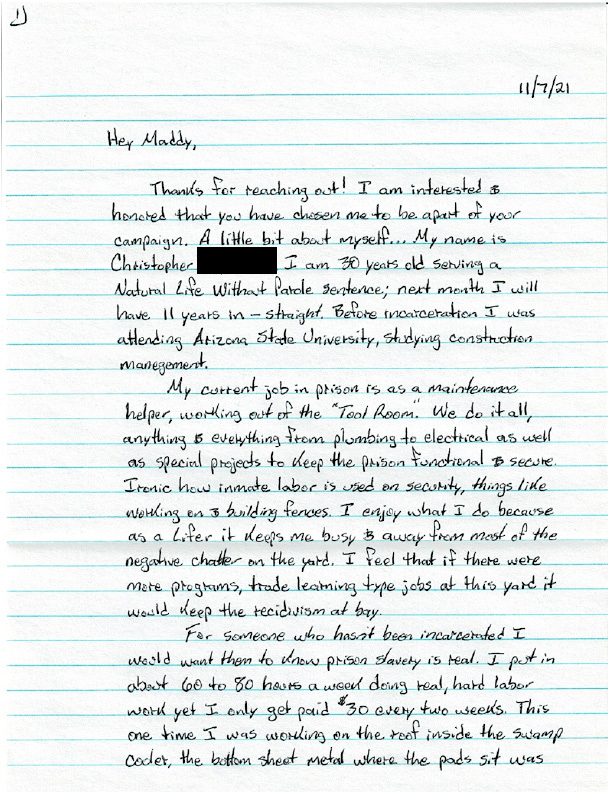 1)
11/7/21
Hey Maddy,
Thanks for reaching out! I am interested &
honored that you have chosen me to be apart of your
campaign. A little bit about myself... My name is
Christopher I am 30 years old serving a
Natural Life Without Parole sentence; next month I will
have 11 years in - straight. Before incarceration I was
attending Arizona State University, studying construction
manegement.
My current job in prison is as a maintenance
helper, working out of the "Tool Room." We do it all,
anything & everything from plumbing to electrical as well
as special projects to keep the prison functional & secure.
Ironic how inmate labor is used on security, things like
working on & building fences. I enjoy what I do because
as a Lifer it keeps me busy & away from most of the
negative chatter on the yard. I feel that if there were
more programs, trade learning type jobs at this yard it
would keep the recidivism at bay.
For someone who hasn't been incarcerated I
would want them to know prison slavery is real. I put in
about 60 to 80 hours a week doing real, hard labor
work yet I only get paid $30 every two weeks. This
one time I was working on the roof inside the swamp
cooler, the bottom sheet metal where the pads sit was